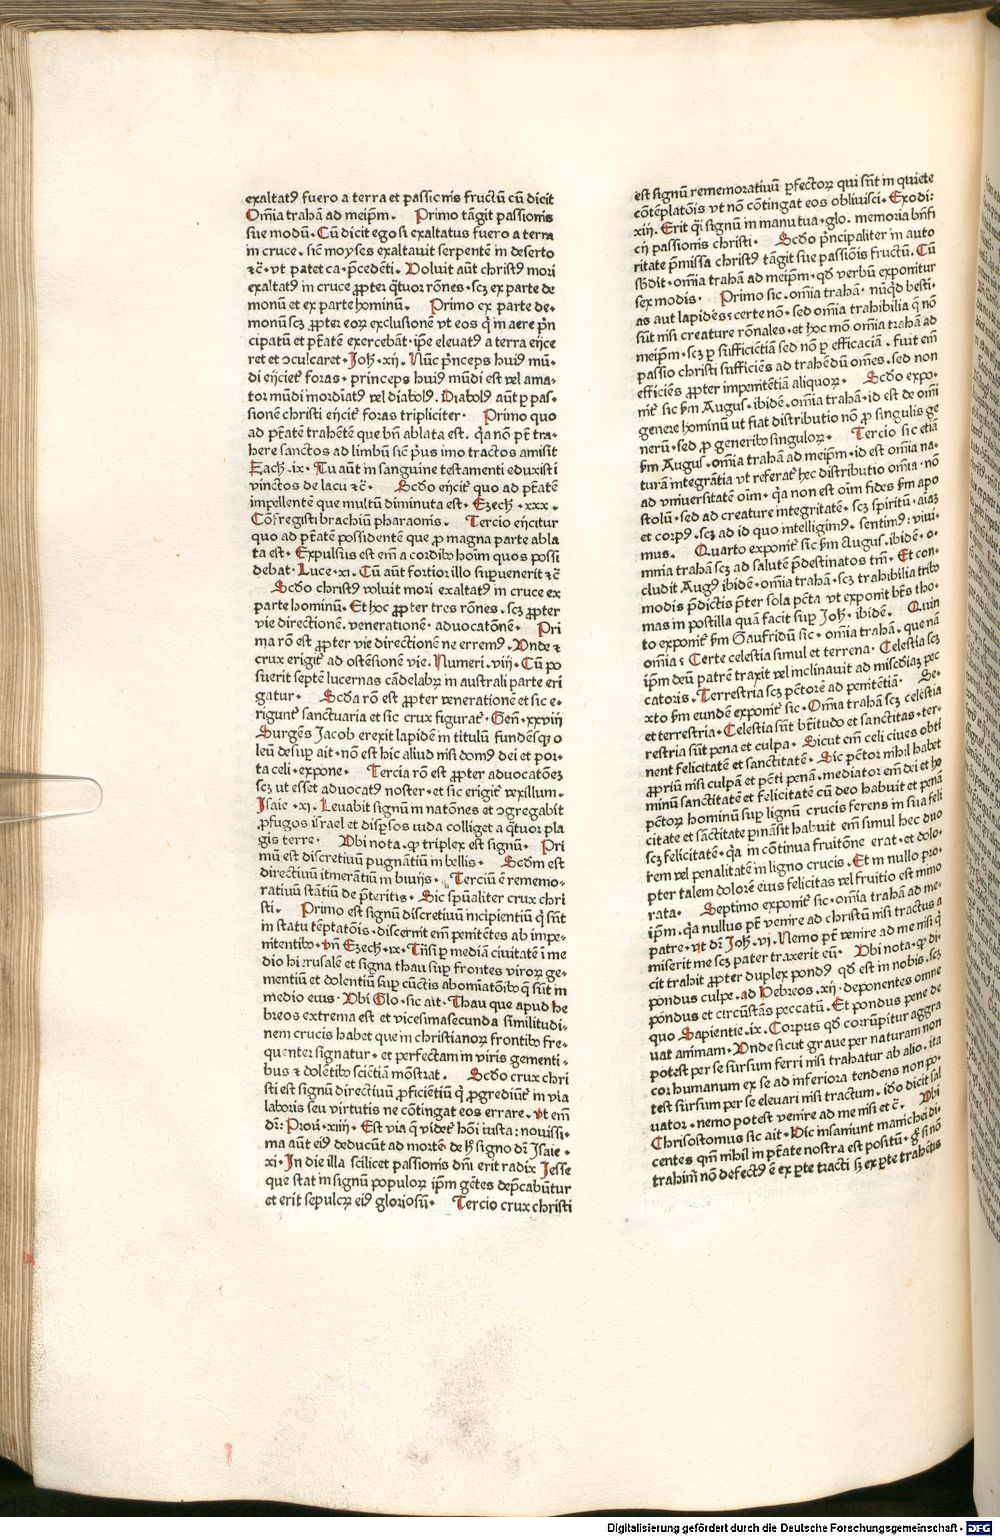 exaltatꝰ fuero a terra et passionis fructū cū dicit
Om̄ia trahā ad meip̄m. Primo tāgit passionis
sue modū. Cū dicit ego si exaltatus fuero a terra
in cruce. sic̄ moyses exaltauit serpentē in deserto
⁊c̄. vt patet ca. p̄cedēti. Voluit aūt christꝰ mori
exaltatꝰ in cruce ꝓpter q̄tuor rōnes. scꝫ ex parte de
monū et ex parte hominū. Primo ex parte de-
monū scꝫ ꝓpter eoꝝ exclusionē vt eos q̄ in aere p̄n
cipatū et p̄tatē exercebāt. ip̄e eleuatꝰ a terra eijce
ret et ɔculcaret. Joh̄. xij. Nūc p̄nceps huiꝰ mū-
di eijciet᷑ foras. princeps huiꝰ mūdi est vel ama-
tor mūdi inordiatꝰ vel diabolꝰ. Diabolꝰ aūt ꝑ pas-
sionē christi eijcit᷑ foras tripliciter. Primo quo
ad p̄tatē trahētē que bn̄ ablata est. q̄a nō p̄t tra-
here sanctos ad limbū sic̄ p̄us imo tractos amisit
Zach. ix. Tu aūt in sanguine testamenti eduxisti
vinctos de lacu ⁊c̄. Scd̄o eijcit᷑ quo ad p̄tatē
impellentē que multū diminuta est. Ezech. xxx.
Cōfregisti brachiū pharaonis. Tercio eijcitur
quo ad p̄tatē possidentē que ꝓ magna parte abla
ta est. Expulsus est em̄ a cordibꝰ hoīm quos possi
debat. Luce. xi. Cū aūt fortior illo supuenerit ⁊c̄
Scd̄o christꝰ voluit mori exaltatꝰ in cruce ex
parte hominū. Et hoc ꝓpter tres rōnes. scꝫ ꝓpter
vie directionē. venerationē. aduocatōnē. Pri
ma rō est ꝓpter vie directionē ne erremꝰ. Vnde ⁊
crux erigit᷑ ad ostēsionē vie. Numeri. viij. Cū po
suerit septē lucernas cādelabrꝫ in australi parte eri
gatur. Scd̄a rō est ꝓpter venerationē et sic e-
rigunt᷑ sanctuaria et sic crux figurat᷑. Gen̄. xxviij
Surgēs Jacob erexit lapidē in titulū fundēsqꝫ o
leū desuꝑ ait. nō est hic aliud nisi domꝰ dei et por-
ta celi. expone. Tercia rō est ꝓpter aduocatōeꝫ
scꝫ ut esset aduocatꝰ noster. et sic erigit᷑ vexillum.
Jsaie. xj. Leuabit signū in natōnes et ɔgregabit
ꝓfugos isrāel et disꝑsos iuda colliget a q̄tuor pla
gis terre. Vbi nota. ꝙ triplex est signū. Pri
mū est discretiuū pugnātiū in bellis. Scd̄m est
directiuū itinerātiū in biuijs. Terciū ē rememo-
ratiuū stātiū de p̄teritis. Sic sp̄ualiter crux chri
sti. Primo est signū discretiuū incipientiū q̄ sūt
in statu tēptatōis. discernit em̄ penitētes ab impe-
nitentibꝰ. vn̄ Ezech. ix. Trāsi ꝑ mediā ciuitatē ī me
dio hierusalē et signa thau suꝑ frontes viroꝝ ge-
mentiū et dolentiū suꝑ cūctis abomiatōibꝰ q̄ sūt in
medio eius. Vbi Glo. sic ait. Thau que apud he
breos extrema est et vicesimasecunda similitudi-
nem crucis habet que in christianoꝝ frontibꝰ fre-
quenter signatur. et perfectam in viris gementi-
bus ⁊ dolētibꝰ sciētiā mōstrat. Scd̄o crux chri
sti est signū directiuū ꝓficiētiū q̄ ꝓgrediūt᷑ in via
laboris seu virtutis ne cōtingat eos errare. vt em̄
dr̄. Prou. xiiij. Est via q̄ videt᷑ hōi iusta: nouissi-
ma aūt eiꝰ deducūt ad mortē. de hꝫ signo dr̄ Jsaie.
xi. Jn die illa scilicet passionis dn̄i erit radix Jesse
que stat in signū populoꝝ ip̄m gētes dep̄cabūtur
et erit sepulcꝝ eiꝰ gloriosū. Tercio crux christi
est signū rememoratiuū ꝑfectoꝝ qui sūt in quiete
cōtēplatōis vt nō cōtingat eos obliuisci. Exodi:
xiij. Erit q̄si signū in manu tua. glo. memoria bn̄fi
cij passionis christi. Scd̄o p̄ncipaliter in auto
ritate p̄missa christꝰ tāgit sue passiōis fructū. Cū
sb̄dit. om̄ia trahā ad meip̄m. qd̄ verbū exponitur
sex modis. Primo sic. om̄ia trahā. nūqd̄ besti-
as aut lapides: certe nō. sed om̄ia trahibilia q̄ nō
sūt nisi creature rōnales. et hoc mō om̄ia trahā ad
meip̄m. scꝫ ꝑ sufficiētiā sed nō ꝑ efficaciā. fuit em̄
passio christi sufficiēs ad trahēdū om̄es. sed non
efficiēs ꝓpter impenitētiā aliquoꝝ. Scd̄o expo-
nit᷑ sic ẜm Augus. ibidē. om̄ia trahā. id est de om̄i
genere hominū ut fiat distributio nō ꝓ singulis ge
nerū. sed ꝓ generibꝰ singuloꝝ. Tercio sic etiā
ẜm Augus. om̄ia trahā ad meip̄m. id est om̄ia na-
turā integrātia vt referat᷑ hec distributio om̄ia. nō
ad vniuersitatē oīm. q̄a non est oīm fides ẜm apo
stolū. sed ad creature integritatē. scꝫ spiritū. aīaꝫ
et corpꝰ. scꝫ ad id quo intelligimꝰ. sentimꝰ: viui-
mus. Quarto exponit᷑ sic ẜm Augus. ibidē. o-
mnia trahā scꝫ ad salutē p̄destinatos tm̄. Et con-
cludit Augꝰ ibidē. om̄ia trahā. scꝫ trahibilia tribꝰ
modis p̄dictis p̄ter sola pc̄ta vt exponit bt̄s tho-
mas in postilla quā facit suꝑ Joh̄. ibidē. Quin
to exponit᷑ ẜm Gaufridū sic. om̄ia trahā. que nā
om̄ia: Certe celestia simul et terrena. Celestia scꝫ
ip̄m deū patrē traxit vel inclinauit ad miscd̄iaꝫ pec
catoris. Terrestria scꝫ pc̄torē ad penitētiā. Se-
xto ẜm eundē exponit᷑ sic. Om̄ia trahā scꝫ celestia
et terrestria. Celestia sūt bt̄itudo et sanctitas. ter-
restria sūt pena et culpa. Sicut em̄ celi ciues obti
nent felicitatē et sanctitatē. Sic pc̄tor nihil habet
ꝓpriū nisi culpā et pc̄ti penā. mediator em̄ dei et ho
minū sanctitatē et felicitatē cū deo habuit et penā
pc̄toꝝ hominū suꝑ lignū crucis ferens in sua feli
citate et sāctitate ꝑmāsit habuit em̄ simul hec duo
scꝫ felicitatē. q̄a in cōtinua fruitōne erat. et dolo-
rem vel penalitatē in ligno crucis. Et in nullo pro-
pter talem dolorē eius felicitas vel fruitio est inmo
rata. Septimo exponit᷑ sic. om̄ia trahā ad me-
ip̄m. q̄a nullus p̄t venire ad christū nisi tractus a
patre. vt dr̄ Joh̄. vj. Nemo p̄t venire ad me nisi q̄
miserit me scꝫ pater traxerit eū. Vbi nota. ꝙ di-
cit trahit ꝓpter duplex pondꝰ qd̄ est in nobis. scꝫ
pondus culpe. ad Hebreos. xij. deponentes omne
pondus et circūstās peccatū. Et pondus pene de
quo Sapientie. ix. Corpus qd̄ corrūpitur aggra
uat animam. Vnde sicut graue per naturam non
potest per se sursum ferri nisi trahatur ab alio. ita
cor humanum ex se ad inferiora tendens non po-
test sursum per se eleuari nisi tractum. id̄o dicit sal
uator. nemo potest venire ad me nisi et c̄. Vbi
Chrisostomus sic ait. Hic insaniunt manichei di-
centes qm̄ nihil in p̄tate nostra est positū. gͥ si nō
trahim᷑ nō defectꝰ ē ex ꝑte tracti sꝫ ex ꝑte trahētis
Digitalisierung gefördert durch die Deutsche Forschungsgemeinschaft - DFG